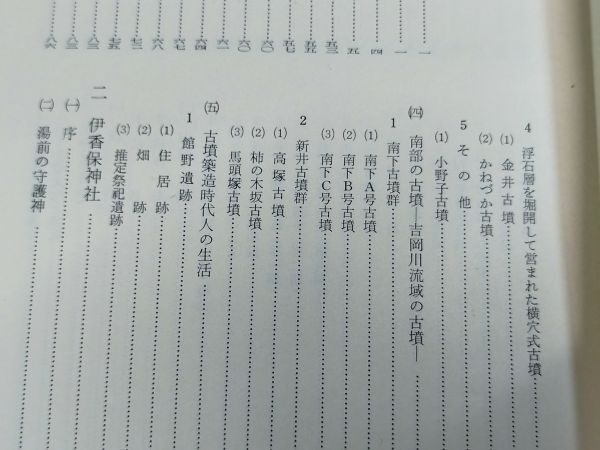 五三
五五
五七
六〇
六〇
六一
六四
六七
六八
七三
七五
八三
八三
八六
4 浮石層を堀開して営まれた横穴式古墳
(1) 金井古墳
(2) かねづか古墳
5 その他
(1) 小野子古墳
㈣ 南部の古墳―吉岡川流域の古墳―
1 南下古墳群
(1) 南下A号古墳
(2) 南下B号古墳
(3) 南下C号古墳
2 新井古墳群
(1) 高塚古墳
(2) 柿の木坂古墳
(3) 馬頭塚古墳
㈤ 古墳築造時代人の生活
1 館野遺跡
(1) 住居跡
(2) 畑跡
(3) 推定祭祀遺跡
二 伊香保神社
㈠ 序
㈡ 湯前の守護神